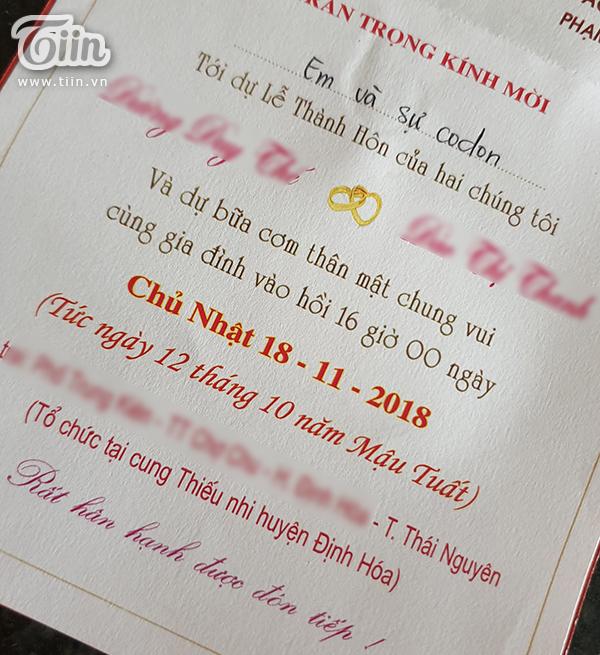 Tiin
www.tiin.vn
PHẠM
TRÂN TRỌNG KÍNH MỜI
Em và sự codon
Tới dự Lễ Thành Hôn của hai chúng tôi
Và dự bữa cơm thân mật chung vui
cùng gia đình vào hồi 16 giờ 00 ngày
Chủ Nhật 18 - 11 - 2018
(Tức ngày 12 tháng 10 năm Mậu Tuất)
- T. Thái Nguyên
(Tổ chức tại cung Thiếu nhi huyện Định Hóa)
Rất hân hạnh được đón tiếp !